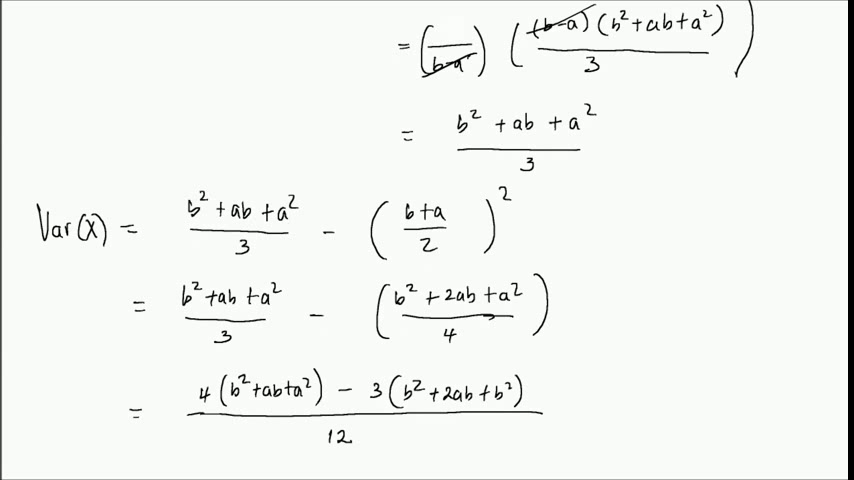 = ( / (b-a) ) ( (b-a) (b² + ab + a²) / 3 )
= b² + ab + a² / 3
Var(X) = b² + ab + a² / 3 - ( b+a / 2 )²
= b² + ab + a² / 3 - ( b² + 2ab + a² / 4 )
= 4 (b² + ab + a²) - 3 (b² + 2ab + b²) / 12